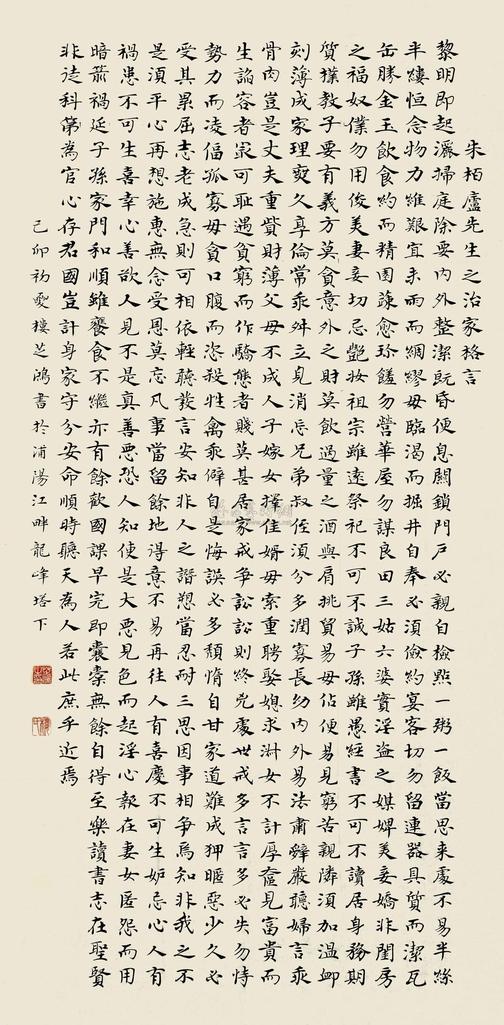 朱柏廬先生之治家格言
黎明即起灑掃庭除要內外整潔既昏便息關鎖門戶必親自檢點一粥一飯當思来處不易半絲
半縷恒念物力維艱宜未雨而綢繆毋臨渴而掘井自奉必須儉約宴客切勿留連器具質而潔瓦
缶勝金玉飲食約而精園蔬愈珍饈勿營華屋勿謀良田三姑六婆實淫盜之媒婢美妾嬌非閨房
之福奴僕勿用俊美妻妾切忌艷妝祖宗雖遠祭祀不可不誠子孫雖愚經書不可不讀居身務期
質樸教子要有義方莫貪意外之財莫飲過量之酒與肩挑貿易毋佔便易見窮苦親隣須加溫卹
刻薄成家理奭久享倫常乖舛立見消忘兄弟叔侄須分多潤寡長幼內外易法肅辭嚴聽婦言乖
骨肉豈是丈夫重貲財薄父母不成人子嫁女擇佳婿毋索重聘娶媳求淑女不計厚奩見富貴而
生諂容者冣可恥遇貧窮而作驕態者賤莫甚居家戒爭訟訟則終凶處世戒多言言多必失勿恃
勢力而凌偪孤寡毋貪口腹而恣殺牲禽乖僻自是悔誤必多頹惰自甘家道難成狎暱惡少久必
受其累屈志老成急則可相依輕聽發言安知非人之譖愬當忍耐三思因事相爭焉知非我之不
是須平心再想施惠無念受恩莫忘凡事當留餘地得意不易再往人有喜慶不可生妒忌心人有
禍患不可生喜幸心善欲人見不是真善惡恐人知便是大惡見色而起淫心報在妻女匿怨而用
暗箭禍延子孫家門和順雖饔食不繼亦有餘歡國課早完即囊橐無餘自得至樂讀書志在聖賢
非徒科第為官心存君國豈計身家守分安命順時聽天為人若此庶乎近焉
己卯初夏樓芝鴻書於浦陽江畔龍峰塔下